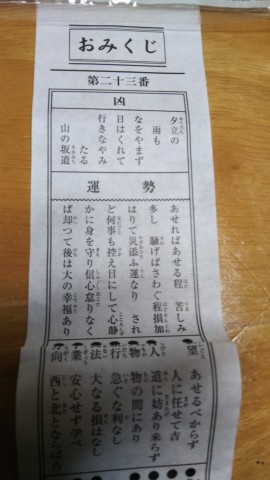 おみくじ
第二十三番
凶
夕立の
雨も
なをやまず
日はくれて
行きなやみ
たる
山の坂道
運勢
あせればあせる程 苦しみ
多し 騒げばさわぐ程損加
はりて災添ふ運なり され
ど何事も控え目にして心静
かに身を守り信心怠りなく
ば却つて後は大の幸福あり
望 あせるべからず
人 人に任せて吉
道に妨あり来らず
物 物の間にあり
行 急ぐな利なし
法 大なる損はなし
業 安心せず学べ
向 西と北とならば吉